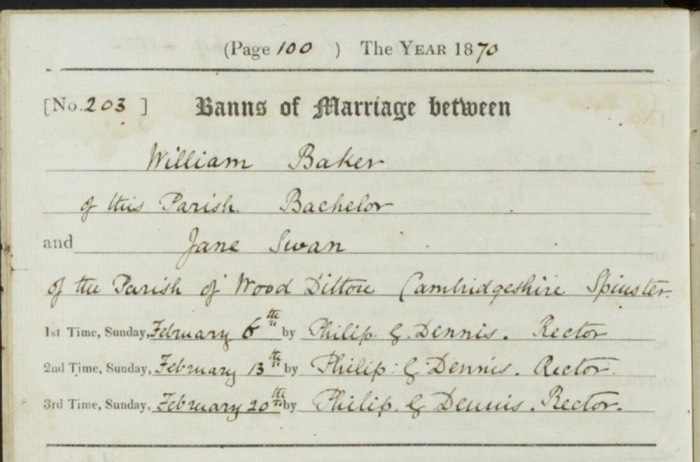 (Page 100 ) The YEAR 1870
[No. 203 ] Banns of Marriage between
William Baker
of this Parish. Bachelor
and Jane Swan
of the Parish of Wood Ditton Cambridgeshire Spinster.
1st Time, Sunday, February 6th by Philip. G. Dennis. Rector
2nd Time, Sunday, February 13th by Philip: G. Dennis. Rector.
3rd Time, Sunday, February 20th by Philip. G Dennis. Rector.